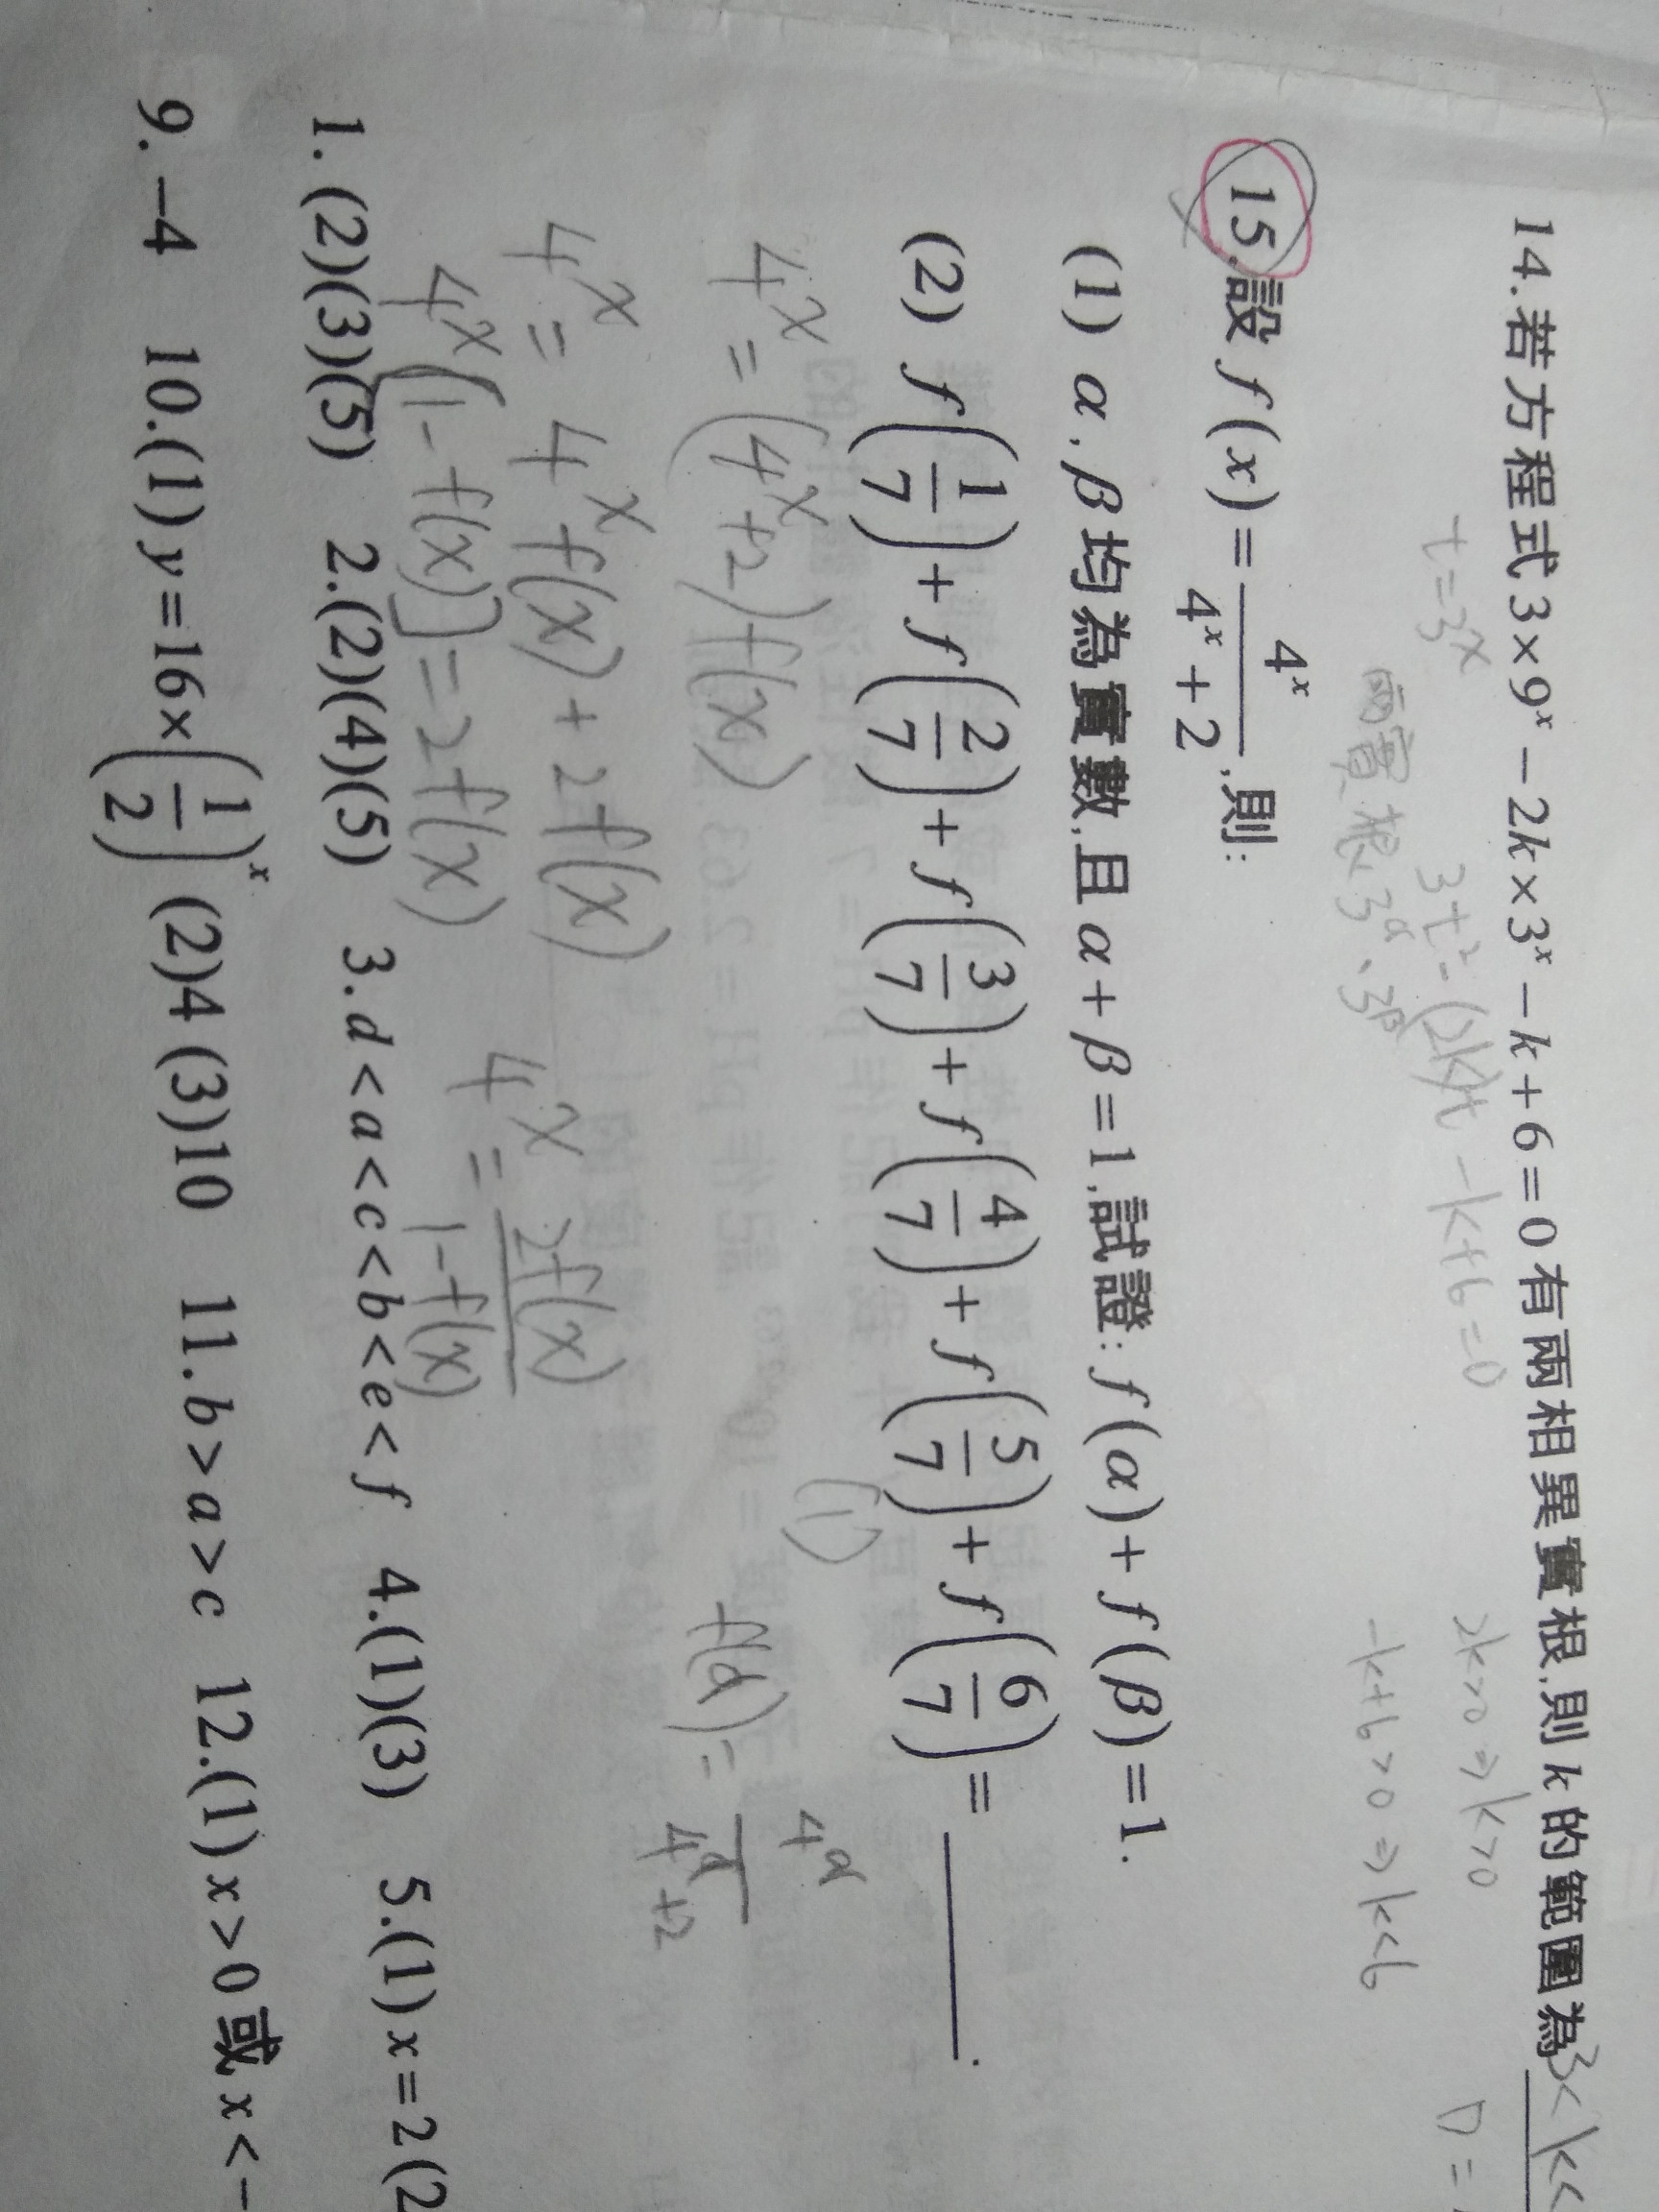 14.若方程式3×9ˣ−2k×3ˣ−k+6=0有兩相異實根,則k的範圍為 3<k<
t=3ˣ 3t²-(2k)t-k+6=0 2k>0⇒k>0 D=
兩實根、3ᵅ、3ᵝ -k+6>0⇒k<6
15.設 f(x)=4ˣ/(4ˣ+2),則:
(1) α,β均為實數,且α+β=1,試證:f(α)+f(β)=1.
(2) f(1/7)+f(2/7)+f(3/7)+f(4/7)+f(5/7)+f(6/7)=______.
(1)
4ˣ=(4ˣ+2)f(x) f(α)=4ᵅ/(4ᵅ+2)
4ˣ=4ˣf(x)+2f(x)
4ˣ[1-f(x)]=2f(x) 4ˣ=2f(x)/(1-f(x))
1.(2)(3)(5) 2.(2)(4)(5) 3.d<a<c<b<e<f 4.(1)(3) 5.(1)x=2(2
9.−4 10.(1)y=16×(1/2)ˣ (2)4 (3)10 11.b>a>c 12.(1)x>0或x<−